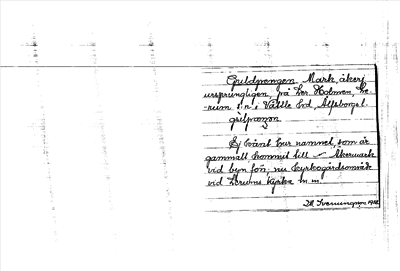 Guldpengen Mark, åker,
ursprungligen, på Ler. Holmen, Le-
rum s:n i Vättle hrd, Älfsborgs l.
guldpæŋən.
Ej känt hur namnet, som är
gammalt kommit till — Åkermark
vid byn förr, nu kyrkogårdsområde
vid Lerums kyrka m. m.